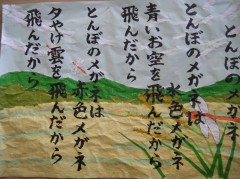 とんぼのメガネは
水色メガネ
青いお空を飛んだから
飛んだから
とんぼのメガネは
赤色メガネ
夕やけ雲を飛んだから
飛んだから